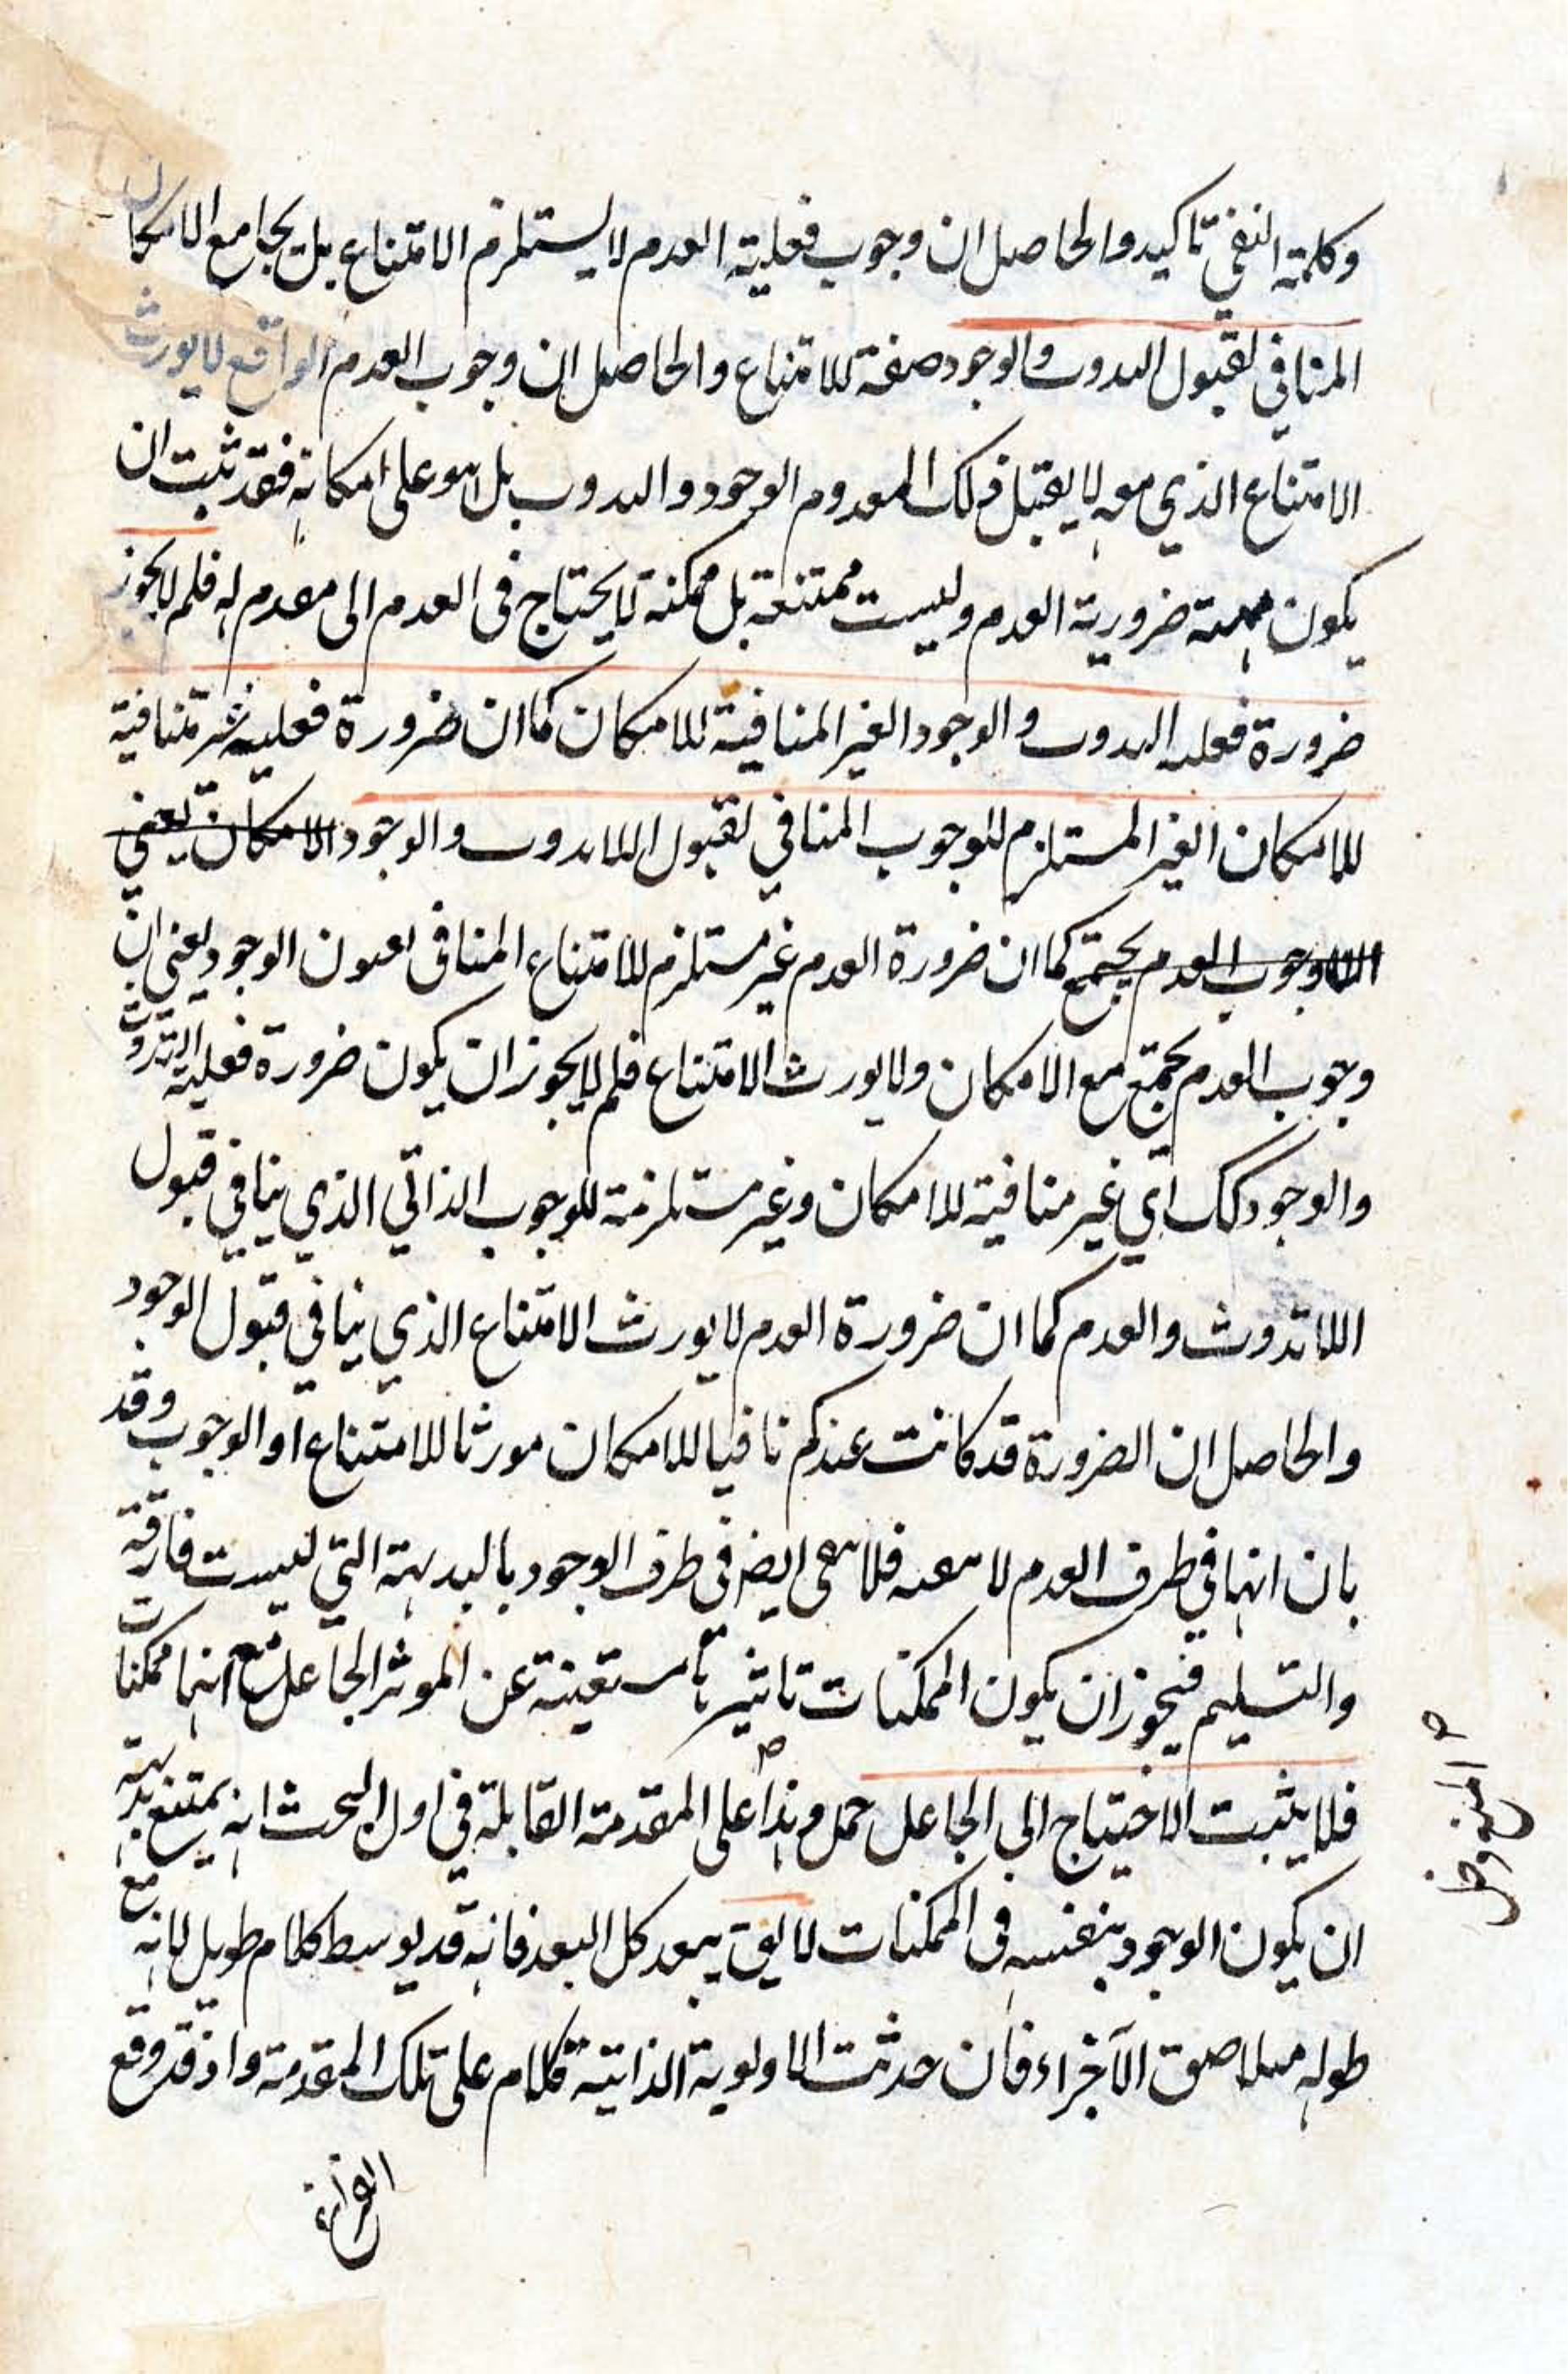 وكلمة النفي تاكيد والحاصل ان وجوب فعلية العدم لا يستلزم الامتناع بل يجامع الامكان
المنافي لقبول الىدوث والوجود صفة للامتناع والحاصل ان وجوب العدم الواقع لا يورث
الامتناع الذي معه لا يقبل ذلك المعدوم الوجود والىدوب بل هو على امكانه فقد ثبت ان
يكون مهية ضرورية العدم وليست ممتنعة بل ممكنة لا يحتاج في العدم الى معدم له فلم لا يجوز
ضرورة فعلية الىدوث والوجود الغير المنافية للامكان كما ان ضرورة فعلية منافية
للامكان الغير المستلزم للوجوب المنافي لقبول اللاىدوث والوجود الامكان يعني
وجوب العدم يجتمع كما ان ضرورة العدم غير مستلزم للامتناع المنافي الوجود يعني ان
وجوب العدم يجتمع مع الامكان ولا يورث الامتناع فلم لا يجوز ان يكون ضرورة فعلية التدوث
والوجود كك اي غير منافية للامكان وغير مستلزمة للوجوب الذاتي الذي ينافي قبول
اللاتدوث والعدم كما ان ضرورة العدم لا يورث الامتناع الذي ينافي قبول الوجود
والحاصل ان الضرورة قد كانت عندكم نافيا للامكان مورثا للامتناع او الوجوب وقد
بان انها في طرف العدم لا فلا ايض في طرف الوجود بالبديهة التي ليست فارقة
والتسليم فيجوز ان يكون الممكنات عن الموثر الجاعل مع انها ممكنات
فلا يثبت الاحتياج الى الجاعل حمل وهذا على المقدمة القابلة في اول البحث انه يمتنع بديهة
ان يكون الوجود بنفسه في الممكنات لا يق يبعد كل البعد فانه قد يوسط كلام طويل لانه مع
طوله الآجزاء فان حدثت الاولوية الذاتية فكلام على تلك المقدمة واذ قد وقع